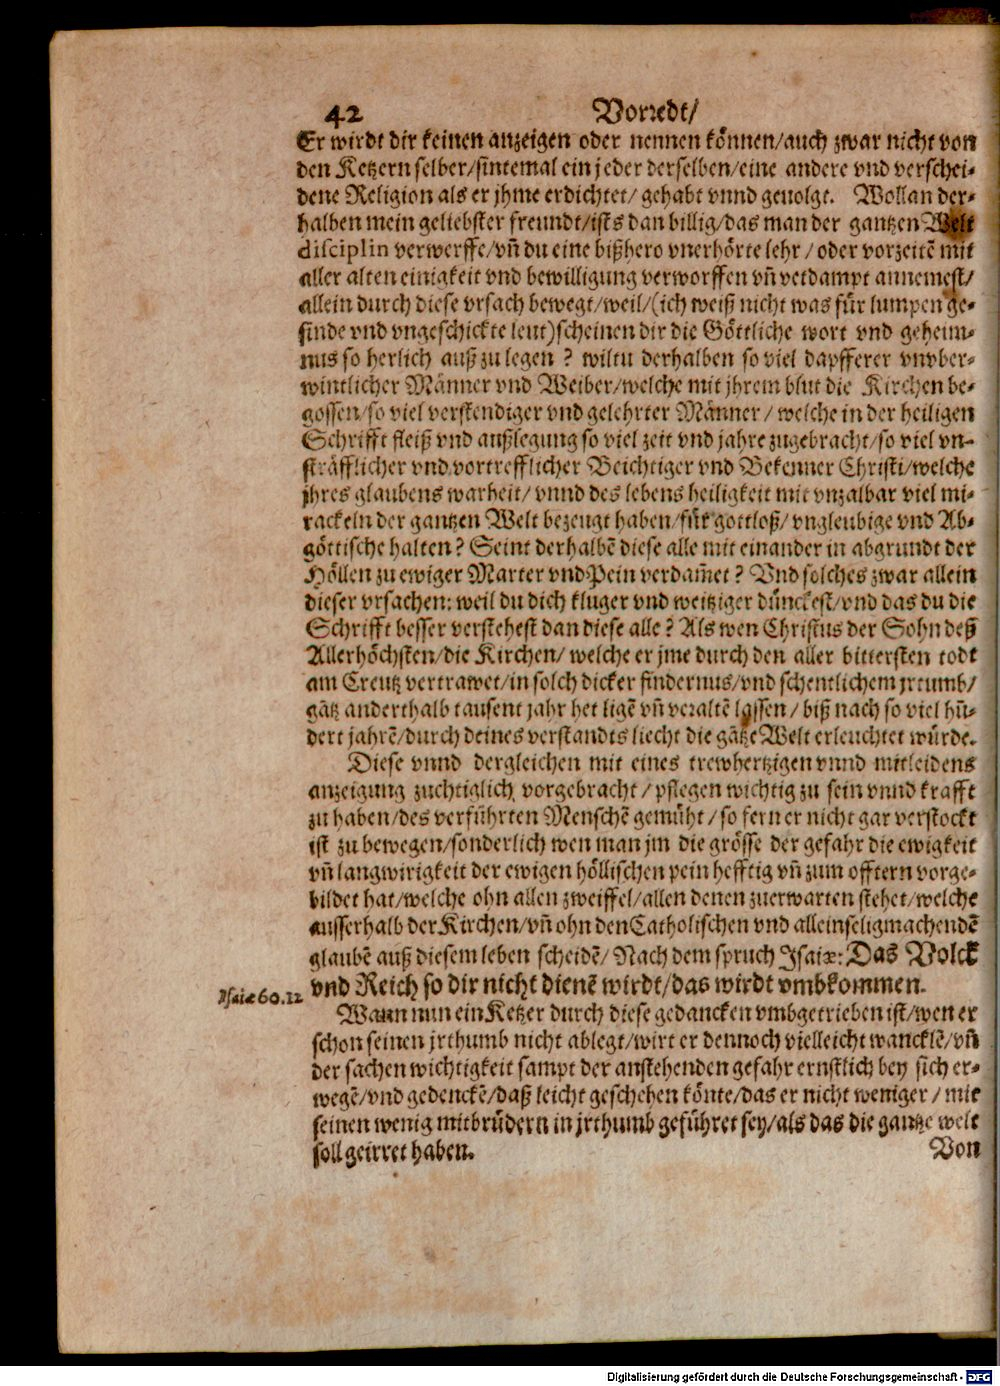 42 Vorredt/
Er wirdt dir keinen anzeigen oder nennen können/auch zwar nicht von
den Ketzern selber/sintemal ein jeder derselben/eine andere vnd verschei-
dene Religion als er jhme erdichtet/ gehabt vnnd geuolgt. Wollan der-
halben mein geliebster freundt/ists dan billig/das man der gantzen Welt
disciplin verwerffe/vn̄ du eine bißhero vnerhörte lehr/ oder vorzeitē mit
aller alten einigkeit vnd bewilligung verworffen vn̄ verdampt annemest/
allein durch diese vrsach bewegt/weil/(ich weiß nicht was für lumpen ge-
sinde vnd vngeschickte leut)scheinen dir die Göttliche wort vnd geheim-
nus so herlich auß zu legen ? wiltu derhalben so viel dapfferer vnvber-
wintlicher Männer vnd Weiber/welche mit jhrem blut die Kirchen be-
gossen/so viel verstendiger vnd gelehrter Männer/ welche in der heiligen
Schrifft fleiß vnd außlegung so viel zeit vnd jahre zugebracht/so viel vn-
sträfflicher vnd vortrefflicher Beichtiger vnd Bekenner Christi/welche
jhres glaubens warheit/ vnnd des lebens heiligkeit mit vnzalbar viel mi-
rackeln der gantzen Welt bezeugt haben/für gottloß/ vngleubige vnd Ab-
göttische halten? Seint derhalbē diese alle mit einander in abgrundt der
Höllen zu ewiger Marter vnd Pein verdam̄et ? Vnd solches zwar allein
dieser vrsachen: weil du dich kluger vnd weitziger dünckest/vnd das du die
Schrifft besser verstehest dan diese alle ? Als wen Christus der Sohn deß
Allerhöchsten/die Kirchen/ welche er jme durch den aller bittersten todt
am Creutz vertrawet/in solch dicker findernus/vnd schentlichem jrtumb/
gātz anderthalb tausent jahr het ligē vn̄ veraltē lassen/ biß nach so viel hū-
dert jahrē/durch deines verstandts liecht die gātze Welt erleuchtet würde.
Diese vnnd dergleichen mit eines trewhertzigen vnnd mitleidens
anzeigung zuchtiglich vorgebracht/ pflegen wichtig zu sein vnnd krafft
zu haben/des verführten Menschē gemüht/ so fern er nicht gar verstockt
ist zu bewegen/sonderlich wen man jm die grösse der gefahr die ewigkeit
vn̄ langwirigkeit der ewigen höllischen pein hefftig vn̄ zum offtern vorge-
bildet hat/welche ohn allen zweiffel/allen denen zuerwarten stehet/welche
ausserhalb der Kirchen/vn̄ ohn den Catholischen vnd alleinseligmachendē
glaubē auß diesem leben scheidē/ Nach dem spruch Isaiæ: Das Volck
vnd Reich so dir nicht dienē wirdt/das wirdt vmbkommen.
Isaiæ 60.12
Wann nun ein Ketzer durch diese gedancken vmbgetrieben ist/wen er
schon seinen jrthumb nicht ablegt/wirt er dennoch vielleicht wancklē/vn̄
der sachen wichtigkeit sampt der anstehenden gefahr ernstlich bey sich er-
wegē/vnd gedenckē/daß leicht geschehen könte/das er nicht weniger/ mit
seinen wenig mitbrüdern in jrthumb geführet sey/als das die gantze welt
soll geirret haben. Von
Digitalisierung gefördert durch die Deutsche Forschungsgemeinschaft - DFG